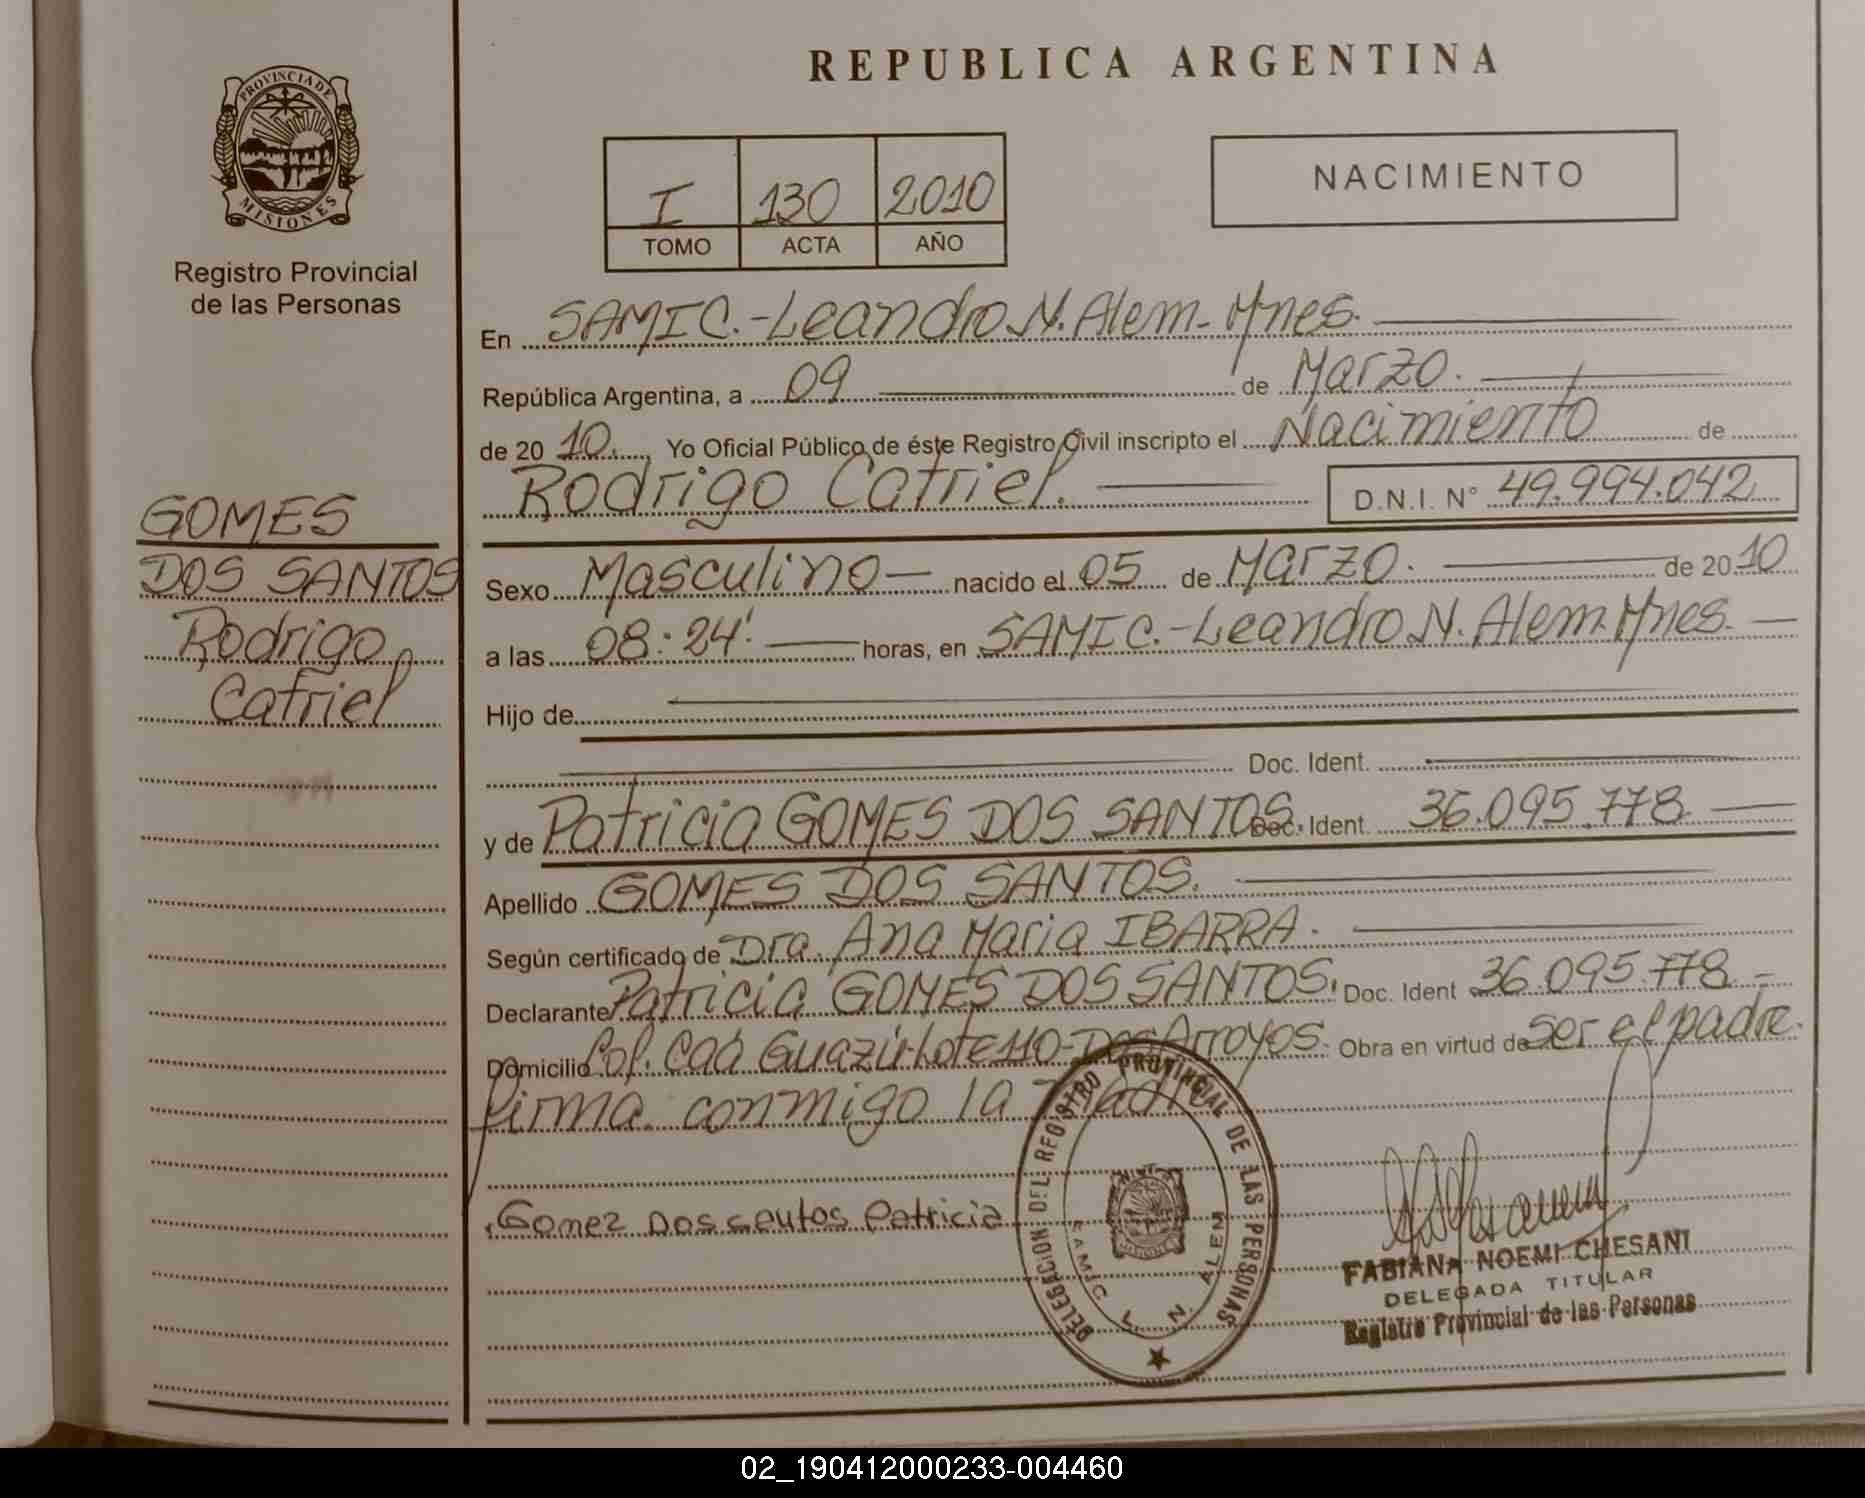 PROVINCIA DE
MISIONES
Registro Provincial
de las Personas
GOMES
DOS SANTOS
Rodrigo
Catriel
REPUBLICA ARGENTINA
I 130 2010
TOMO ACTA AÑO
NACIMIENTO
En SAMIC.-Leandro N. Alem- Mnes.
República Argentina, a 09 de Marzo.
de 20 10. Yo Oficial Público de éste Registro Civil inscripto el Nacimiento de
Rodrigo Catriel. D.N.I. N° 49.994.042
Sexo Masculino nacido el 05 de Marzo. de 20 10
a las 08:24'. horas, en SAMIC.-Leandro N. Alem. Mnes.
Hijo de
Doc. Ident.
y de Patricia GOMES DOS SANTOS. Doc. Ident. 36.095.778
Apellido GOMES DOS SANTOS.
Según certificado de Dra. Ana Maria IBARRA.
Declarante Patricia GOMES DOS SANTOS. Doc. Ident 36.095.778-
Domicilio Col. Caá Guazú-Lote 110-Dos Arroyos. Obra en virtud de Ser el padre.
firma conmigo la
Gomez Dos centos Patricia
DELEGACION DEL REGISTRO PROVINCIAL DE LAS PERSONAS
SAMIC L. N. ALEM
FABIANA NOEMI CHESANI
DELEGADA TITULAR
Registro Provincial de las Personas
02_190412000233-004460